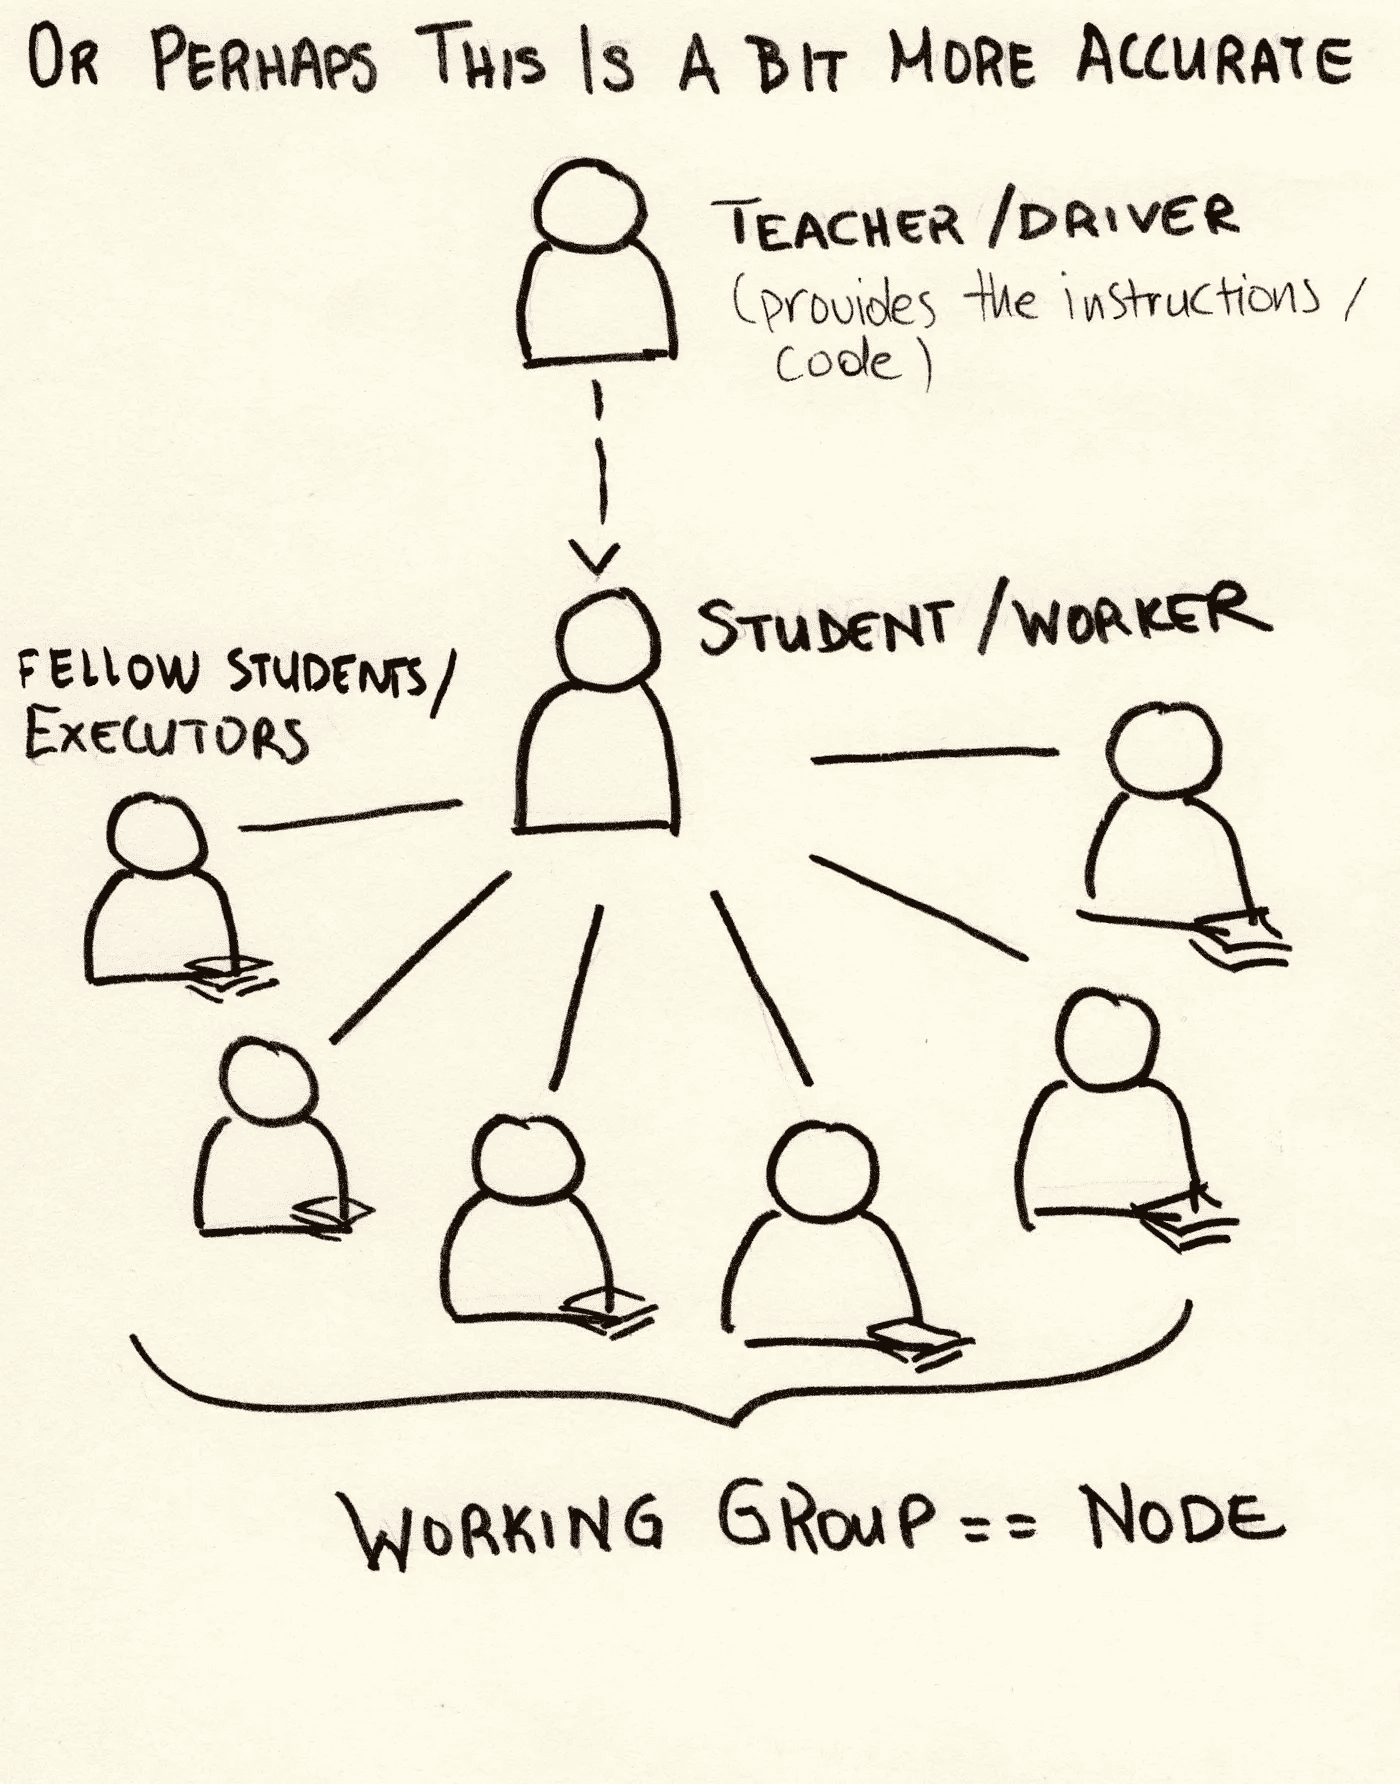 OR PERHAPS THIS IS A BIT MORE ACCURATE
TEACHER / DRIVER
(provides the instructions /
code)
STUDENT / WORKER
FELLOW STUDENTS /
EXECUTORS
WORKING GROUP == NODE